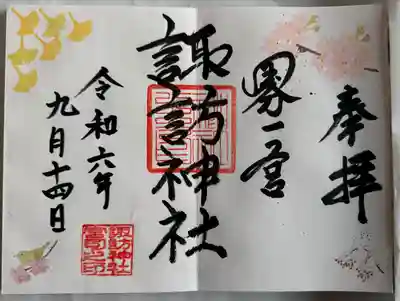 奉拝
一宮
諏訪神社
令和六年
九月十四日
諏訪神社
宮司之印